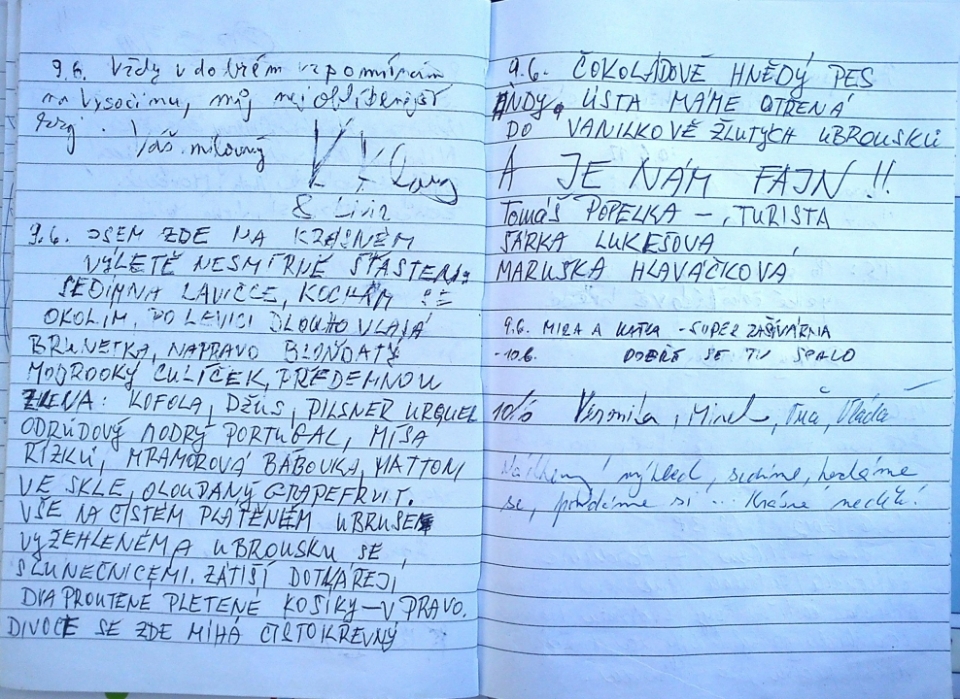 9.6. Vždy v dobrém vzpomínám
na Vysočinu, můj nejoblíbenější
Váš milovaný
9.6. JSEM ZDE NA KRÁSNÉM
VÝLETĚ NESMÍRNĚ ŠŤASTEN,
SEDÍM NA LAVIČCE, KOCHÁM SE
OKOLÍM, PO LEVICI DLOUHOVLASÁ
BRUNETKA, NAPRAVO BLONĎATÝ
MODROOKÝ CULÍČEK, PŘEDEMNOU
ŽENA: KOFOLA, DŽUS, PILSNER URQUEL
ODRŮDOVÝ MODRÝ PORTUGAL, MÍSA
ŘÍZKŮ, MRAMOROVÁ BÁBOVKA, MATTONI
VE SKLE, OLOUPANÝ GRAPEFRUIT.
VŠE NA ČISTÉM PLÁTĚNÉM UBRUSE
VYŽEHLENÉM A UBROUSKU SE
SLUNEČNICEMI. ZÁTIŠÍ DOTVÁŘEJÍ
DVA PROUTĚNÉ PLETENÉ KOŠÍKY – VPRAVO.
DIVOCE SE ZDE MÍHÁ ČISTOKREVNÝ
9.6. ČOKOLÁDOVĚ HNĚDÝ PES
ANDY. ÚSTA MÁME OTŘENÁ
DO VANILKOVĚ ŽLUTÝCH UBROUSKŮ
A JE NÁM FAJN!!
TOMÁŠ POPELKA –, TURISTA
ŠÁRKA LUKEŠOVÁ,
MARUŠKA HLAVÁČKOVÁ
9.6. MIRA A KATKA - SUPER ZAŠÍVÁRNA
-10.6. DOBŘE SE TU SPALO
10/6 Veronika, Mirek, Vláďa
výhled, sedíme, kocháme
se, povídáme si ... Krásné nedělí!